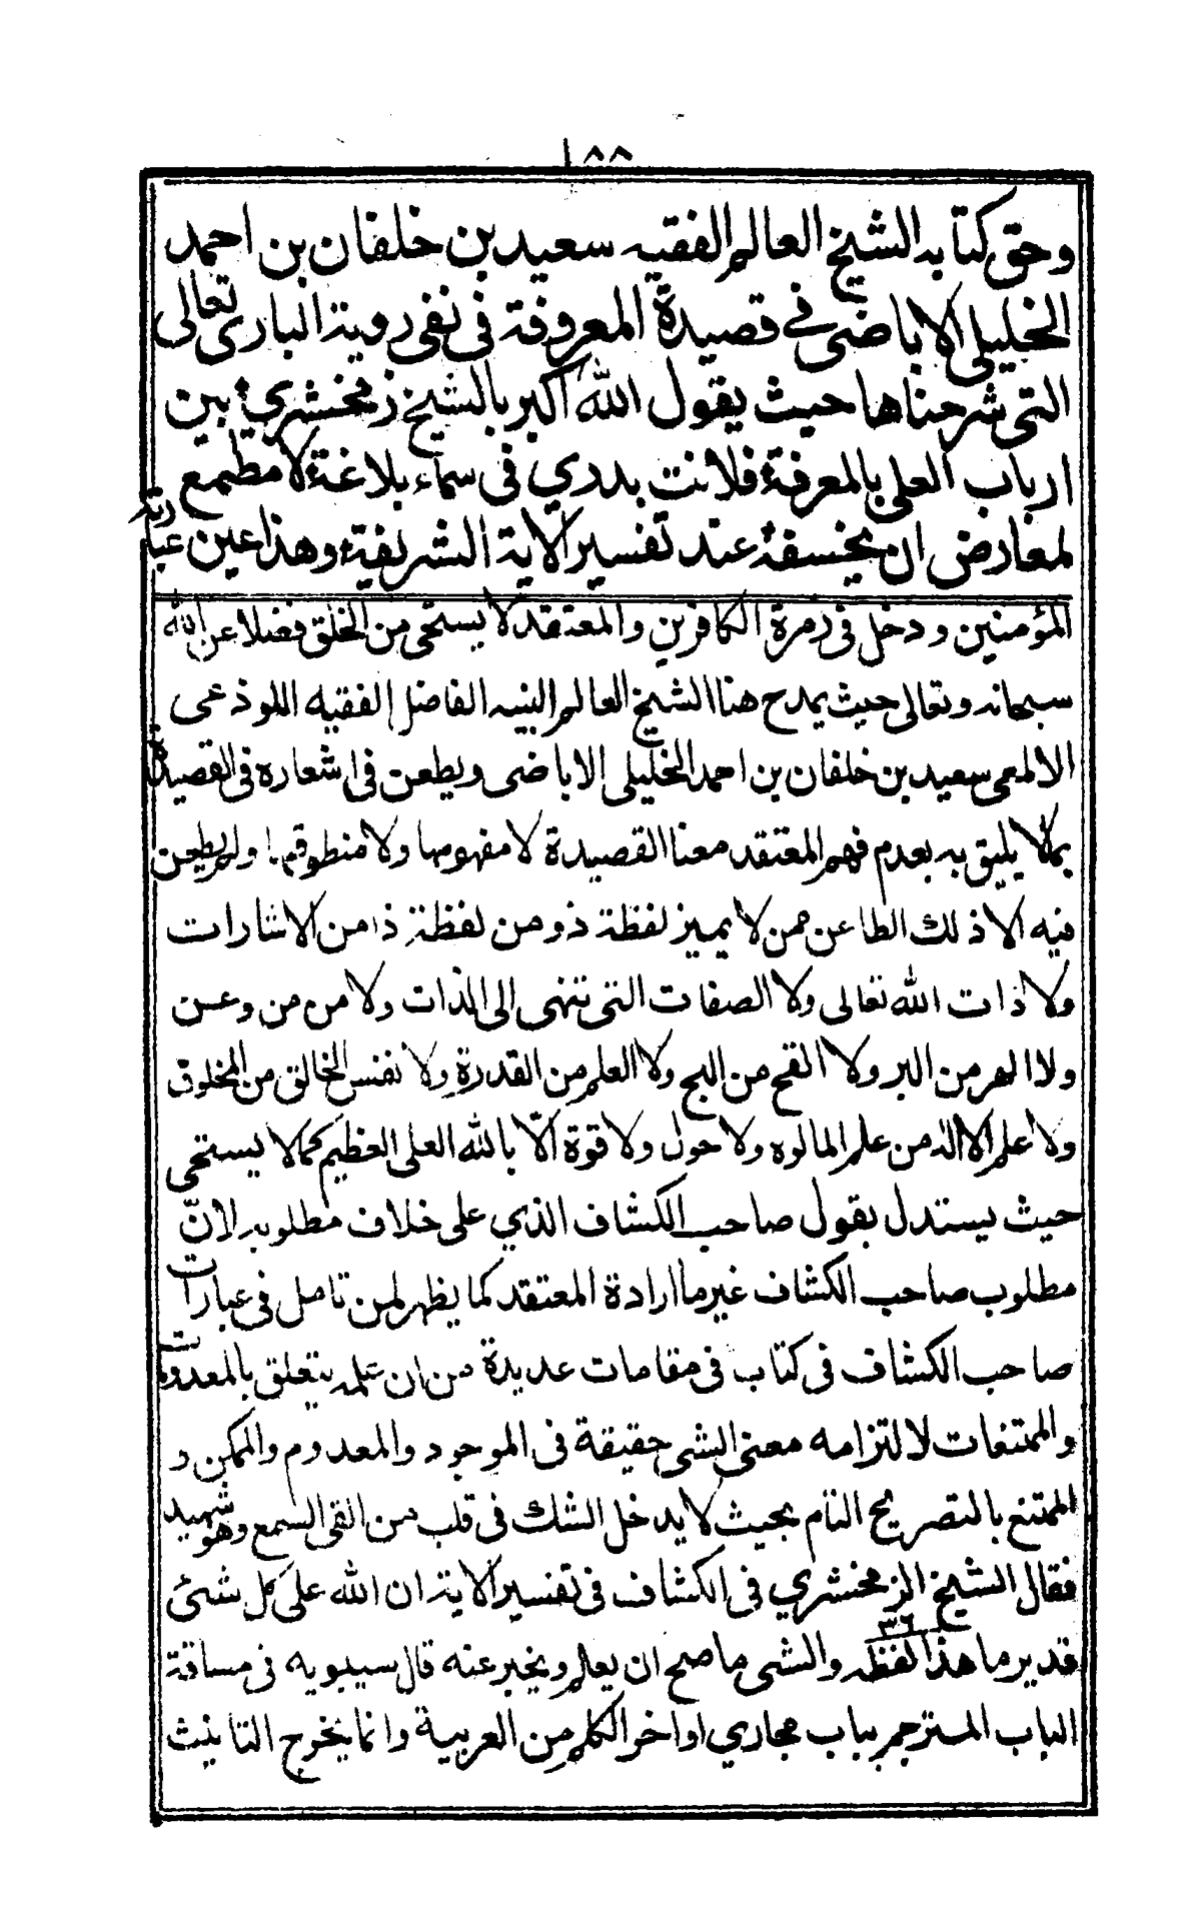 ١٨٨
وحق كتابه الشيخ العالم الفقيه سعيد بن خلفان بن احمد
الخليلى الاباضى في قصيدة المعروفة فى نفى روية البارى تعالى
التى شرحناها حيث يقول الله اكبر بالشيخ زمخشري بين
ارباب العلى بالمعرفة فلانت بدري فى سماء بلاغة لا مطمع
لمعارض ان يخسفه عند تفسير الاية الشريفة وهذا عين عبارته
المؤمنين ودخل فى زمرة الكافرين والمعتقد لا يستحى من الخلق فضلا عن الله
سبحانه وتعالى حيث يمدح هنا الشيخ العالم النبيه الفاضل الفقيه اللوذعى
الالمعى سعيد بن خلفان بن احمد الخليلى الاباضى ويطعن فى اشعاره فى القصيدة
بما لا يليق به بعدم فهم المعتقد معنا القصيدة لا مفهومها ولا منطوقها ولم يطعن
فيه الا ذلك الطاعن ممن لا يميز لفظة ذو من لفظة ذا من الاشارات
ولا ذات الله تعالى ولا الصفات التى تنتهى الى الذات ولا من من وعن
ولا الهر من البر ولا القح من البج ولا العلم من القدرة ولا نفس الخالق من المخلوق
ولا علم الاله من علم المالوه ولا حول ولا قوة الّا بالله العلى العظيم كما لا يستحى
حيث يستدل بقول صاحب الكشاف الذي على خلاف مطلوبه لانّ
مطلوب صاحب الكشاف غير ما ارادة المعتقد كما يظهر لمن تامل فى عبارات
صاحب الكشاف فى كتاب فى مقامات عديدة من ان علمه يتعلق بالمعدومات
والممتنعات لالتزامه معنى الشى حقيقة فى الموجود والمعدوم والممكن و
الممتنع بالتصريح التام بحيث لا يدخل الشك فى قلب من القى السمع وهو شهيد
فقال الشيخ الزمخشري فى الكشاف فى تفسير الاية ان الله على كل شئ
٣٦
قدير ما هذا لفظه والشى ما صح ان يعلم ويخبر عنه قال سيبويه فى مساقة
الباب المترجم بباب مجاري اواخر الكلم من العربية وانما يخرج التانيث